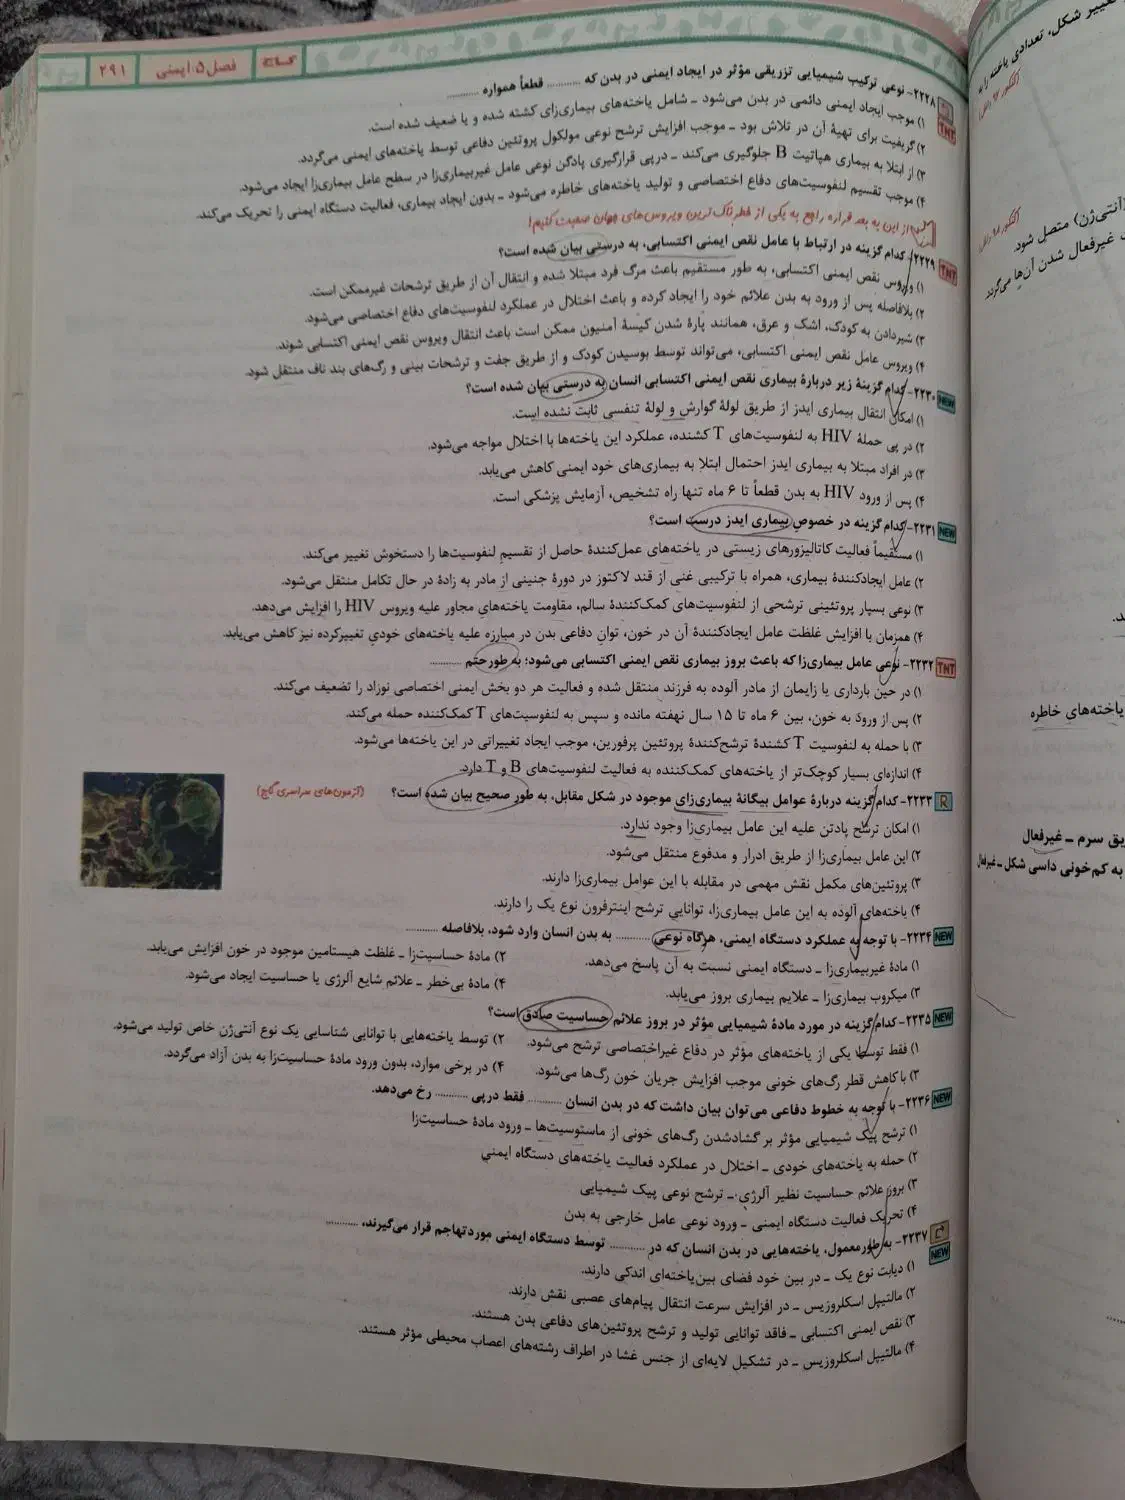 گاج
فصل ۵: ایمنی
۲۹۱
۲۲۲۸- نوعی ترکیب شیمیایی تزریقی مؤثر در ایجاد ایمنی در بدن که .......... قطعاً همواره ..........
۱) موجب ایجاد ایمنی دائمی در بدن می‌شود ـ شامل یاخته‌های بیماری‌زای کشته شده و یا ضعیف شده است.
۲) گریفیت برای تهیهٔ آن در تلاش بود ـ موجب افزایش ترشح نوعی مولکول پروتئین دفاعی توسط یاخته‌های ایمنی می‌گردد.
۳) از ابتلا به بیماری هپاتیت B جلوگیری می‌کند ـ درپی قرارگیری پادگن نوعی عامل غیربیماری‌زا در سطح عامل بیماری‌زا ایجاد می‌شود.
۴) موجب تقسیم لنفوسیت‌های دفاع اختصاصی و تولید یاخته‌های خاطره می‌شود ـ بدون ایجاد بیماری، فعالیت دستگاه ایمنی را تحریک می‌کند.
از این به بعد قراره راجع به یکی از خطرناک‌ترین ویروس‌های جهان صحبت کنیم!
۲۲۲۹- کدام گزینه در ارتباط با عامل نقص ایمنی اکتسابی، به درستی بیان شده است؟
۱) ویروس نقص ایمنی اکتسابی، به طور مستقیم باعث مرگ فرد مبتلا شده و انتقال آن از طریق ترشحات غیرممکن است.
۲) بلافاصله پس از ورود به بدن علائم خود را ایجاد کرده و باعث اختلال در عملکرد لنفوسیت‌های دفاع اختصاصی می‌شود.
۳) شیردادن به کودک، اشک و عرق، همانند پارهٔ شدن کیسهٔ آمنیون ممکن است باعث انتقال ویروس نقص ایمنی اکتسابی شوند.
۴) ویروس عامل نقص ایمنی اکتسابی، می‌تواند توسط بوسیدن کودک و از طریق جفت و ترشحات بینی و رگ‌های بند ناف منتقل شود.
۲۲۳۰- کدام گزینهٔ زیر دربارهٔ بیماری نقص ایمنی اکتسابی انسان به درستی بیان شده است؟
۱) امکان انتقال بیماری ایدز از طریق لولهٔ گوارش و لولهٔ تنفسی ثابت نشده است.
۲) در پی حملهٔ HIV به لنفوسیت‌های T کشنده، عملکرد این یاخته‌ها با اختلال مواجه می‌شود.
۳) در افراد مبتلا به بیماری ایدز احتمال ابتلا به بیماری‌های خود ایمنی کاهش می‌یابد.
۴) پس از ورود HIV به بدن قطعاً تا ۶ ماه تنها راه تشخیص، آزمایش پزشکی است.
۲۲۳۱- کدام گزینه در خصوص بیماری ایدز درست است؟
۱) مستقیماً فعالیت کاتالیزورهای زیستی در یاخته‌های عمل‌کنندهٔ حاصل از تقسیم لنفوسیت‌ها را دستخوش تغییر می‌کند.
۲) عامل ایجادکنندهٔ بیماری، همراه با ترکیبی غنی از قند لاکتوز در دورهٔ جنینی از مادر به زادهٔ در حال تکامل منتقل می‌شود.
۳) نوعی بسپار پروتئینی ترشحی از لنفوسیت‌های کمک‌کنندهٔ سالم، مقاومت یاخته‌های مجاور علیه ویروس HIV را افزایش می‌دهد.
۴) همزمان با افزایش غلظت عامل ایجادکنندهٔ آن در خون، توان دفاعی بدن در مبارزه علیه یاخته‌های خودی تغییرکرده نیز کاهش می‌یابد.
۲۲۳۲- نوعی عامل بیماری‌زا که باعث بروز بیماری نقص ایمنی اکتسابی می‌شود؛ به طورحتم ..........
۱) در حین بارداری یا زایمان از مادر آلوده به فرزند منتقل شده و فعالیت هر دو بخش ایمنی اختصاصی نوزاد را تضعیف می‌کند.
۲) پس از ورود به خون، بین ۶ ماه تا ۱۵ سال نهفته مانده و سپس به لنفوسیت‌های T کمک‌کننده حمله می‌کند.
۳) با حمله به لنفوسیت T کشندهٔ ترشح‌کنندهٔ پروتئین پرفورین، موجب ایجاد تغییراتی در این یاخته‌ها می‌شود.
۴) اندازه‌ای بسیار کوچک‌تر از یاخته‌های کمک‌کننده به فعالیت لنفوسیت‌های B و T دارد.
۲۲۳۳- کدام گزینه دربارهٔ عوامل بیگانهٔ بیماری‌زای موجود در شکل مقابل، به طور صحیح بیان شده است؟ (آزمون‌های سراسری گاج)
۱) امکان ترشح پادتن علیه این عامل بیماری‌زا وجود ندارد.
۲) این عامل بیماری‌زا از طریق ادرار و مدفوع منتقل می‌شود.
۳) پروتئین‌های مکمل نقش مهمی در مقابله با این عوامل بیماری‌زا دارند.
۴) یاخته‌های آلوده به این عامل بیماری‌زا، توانایی ترشح اینترفرون نوع یک را دارند.
۲۲۳۴- با توجه به عملکرد دستگاه ایمنی، هرگاه نوعی .......... به بدن انسان وارد شود، بلافاصله ..........
۱) مادهٔ غیربیماری‌زا ـ دستگاه ایمنی نسبت به آن پاسخ می‌دهد.
۲) مادهٔ حساسیت‌زا ـ غلظت هیستامین موجود در خون افزایش می‌یابد.
۳) میکروب بیماری‌زا ـ علایم بیماری بروز می‌یابد.
۴) مادهٔ بی‌خطر ـ علائم شایع آلرژی یا حساسیت ایجاد می‌شود.
۲۲۳۵- کدام گزینه در مورد مادهٔ شیمیایی مؤثر در بروز علائم حساسیت صادق است؟
۱) فقط توسط یکی از یاخته‌های مؤثر در دفاع غیراختصاصی ترشح می‌شود.
۲) توسط یاخته‌هایی با توانایی شناسایی یک نوع آنتی‌ژن خاص تولید می‌شود.
۳) با کاهش قطر رگ‌های خونی موجب افزایش جریان خون رگ‌ها می‌شود.
۴) در برخی موارد، بدون ورود مادهٔ حساسیت‌زا به بدن آزاد می‌گردد.
۲۲۳۶- با توجه به خطوط دفاعی می‌توان بیان داشت که در بدن انسان .......... فقط درپی .......... رخ می‌دهد.
۱) ترشح پیک شیمیایی مؤثر بر گشادشدن رگ‌های خونی از ماستوسیت‌ها ـ ورود مادهٔ حساسیت‌زا
۲) حمله به یاخته‌های خودی ـ اختلال در عملکرد فعالیت یاخته‌های دستگاه ایمنی
۳) بروز علائم حساسیت نظیر آلرژی ـ ترشح نوعی پیک شیمیایی
۴) تحریک فعالیت دستگاه ایمنی ـ ورود نوعی عامل خارجی به بدن
۲۲۳۷- به طورمعمول، یاخته‌هایی در بدن انسان که در .......... توسط دستگاه ایمنی موردتهاجم قرار می‌گیرند، ..........
۱) دیابت نوع یک ـ در بین خود فضای بین‌یاخته‌ای اندکی دارند.
۲) مالتیپل اسکلروزیس ـ در افزایش سرعت انتقال پیام‌های عصبی نقش دارند.
۳) نقص ایمنی اکتسابی ـ فاقد توانایی تولید و ترشح پروتئین‌های دفاعی بدن هستند.
۴) مالتیپل اسکلروزیس ـ در تشکیل لایه‌ای از جنس غشا در اطراف رشته‌های اعصاب محیطی مؤثر هستند.
تغییر شکل، تعدادی یاخته را به
(آنتی‌ژن) متصل شود.
غیرفعال شدن آن‌ها می‌گردد
یاخته‌های خاطره
یق سرم ـ غیرفعال
به کم‌خونی داسی شکل ـ غیرفعال